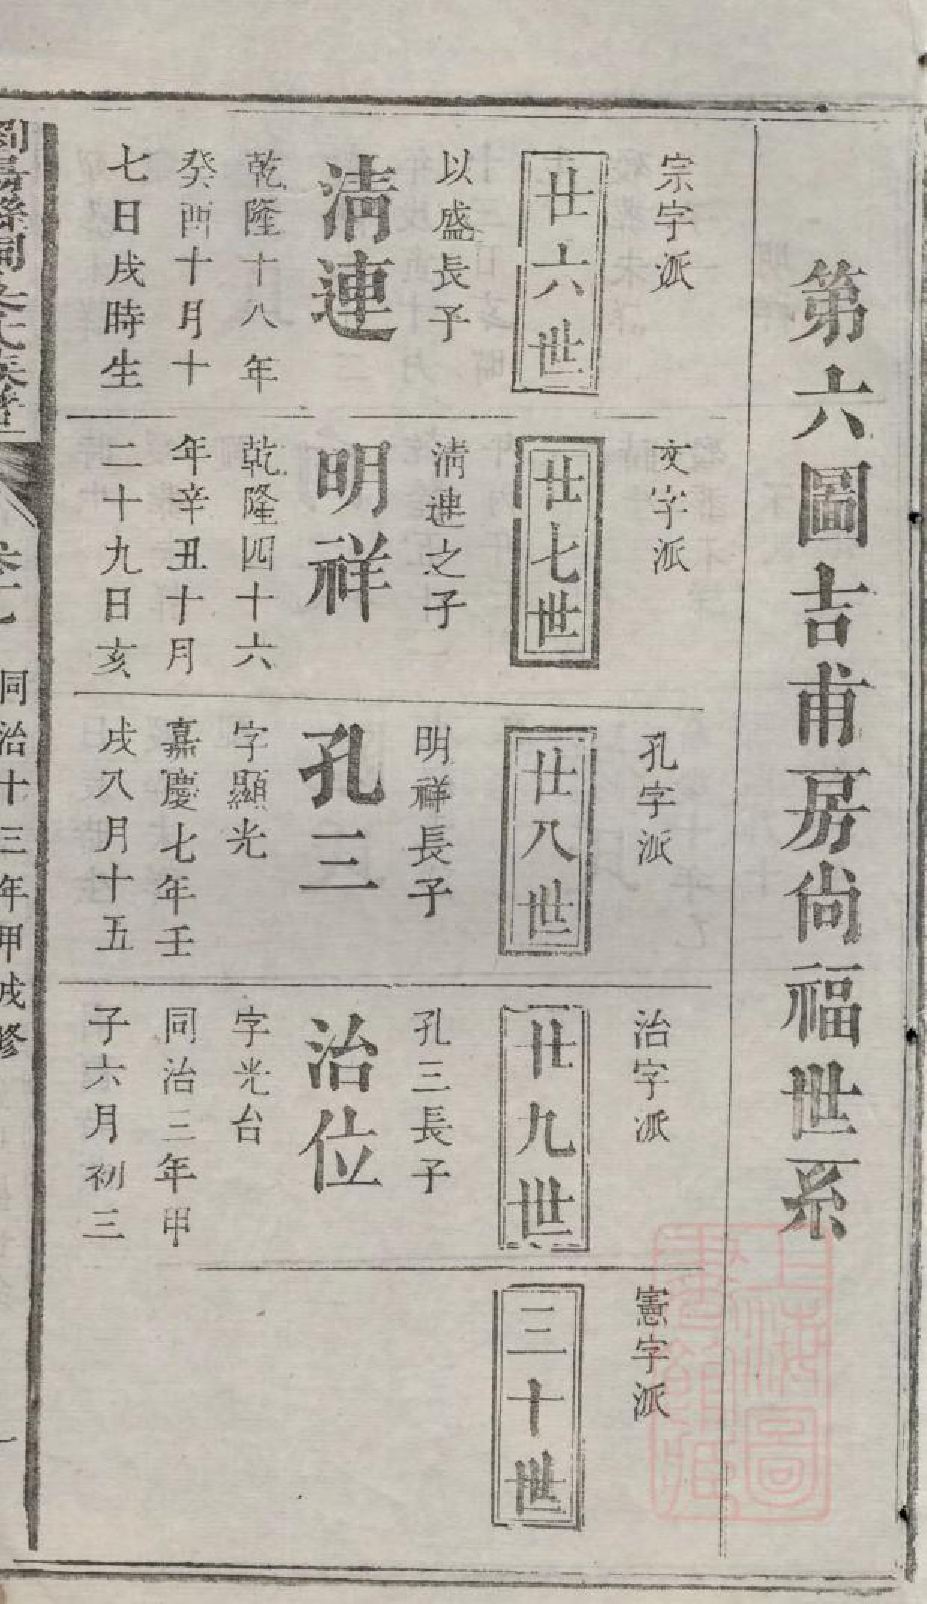 第六圖吉甫房尙福世系
宗字派
廿六世
以盛長子
淸連
乾隆十八年
癸酉十月十
七日戌時生
文字派
廿七世
淸連之子
明祥
乾隆四十六
年辛丑十月
二十九日亥
孔字派
廿八世
明祥長子
孔三
字顯光
嘉慶七年壬
戌八月十五
治字派
廿九世
孔三長子
治位
字光台
同治三年甲
子六月初三
憲字派
三十世
同治十三年甲戌修
上海圖書館藏